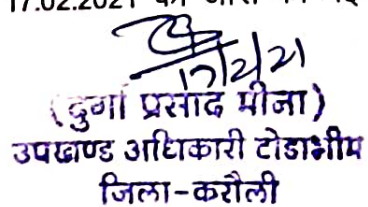 17.02.2021 को जारी
17/2/21
(दुर्गा प्रसाद मीना)
उपखण्ड अधिकारी टोडाभीम
जिला-करौली